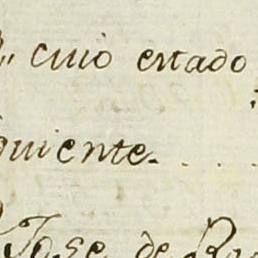 cuio estado
quiente.
Jose de